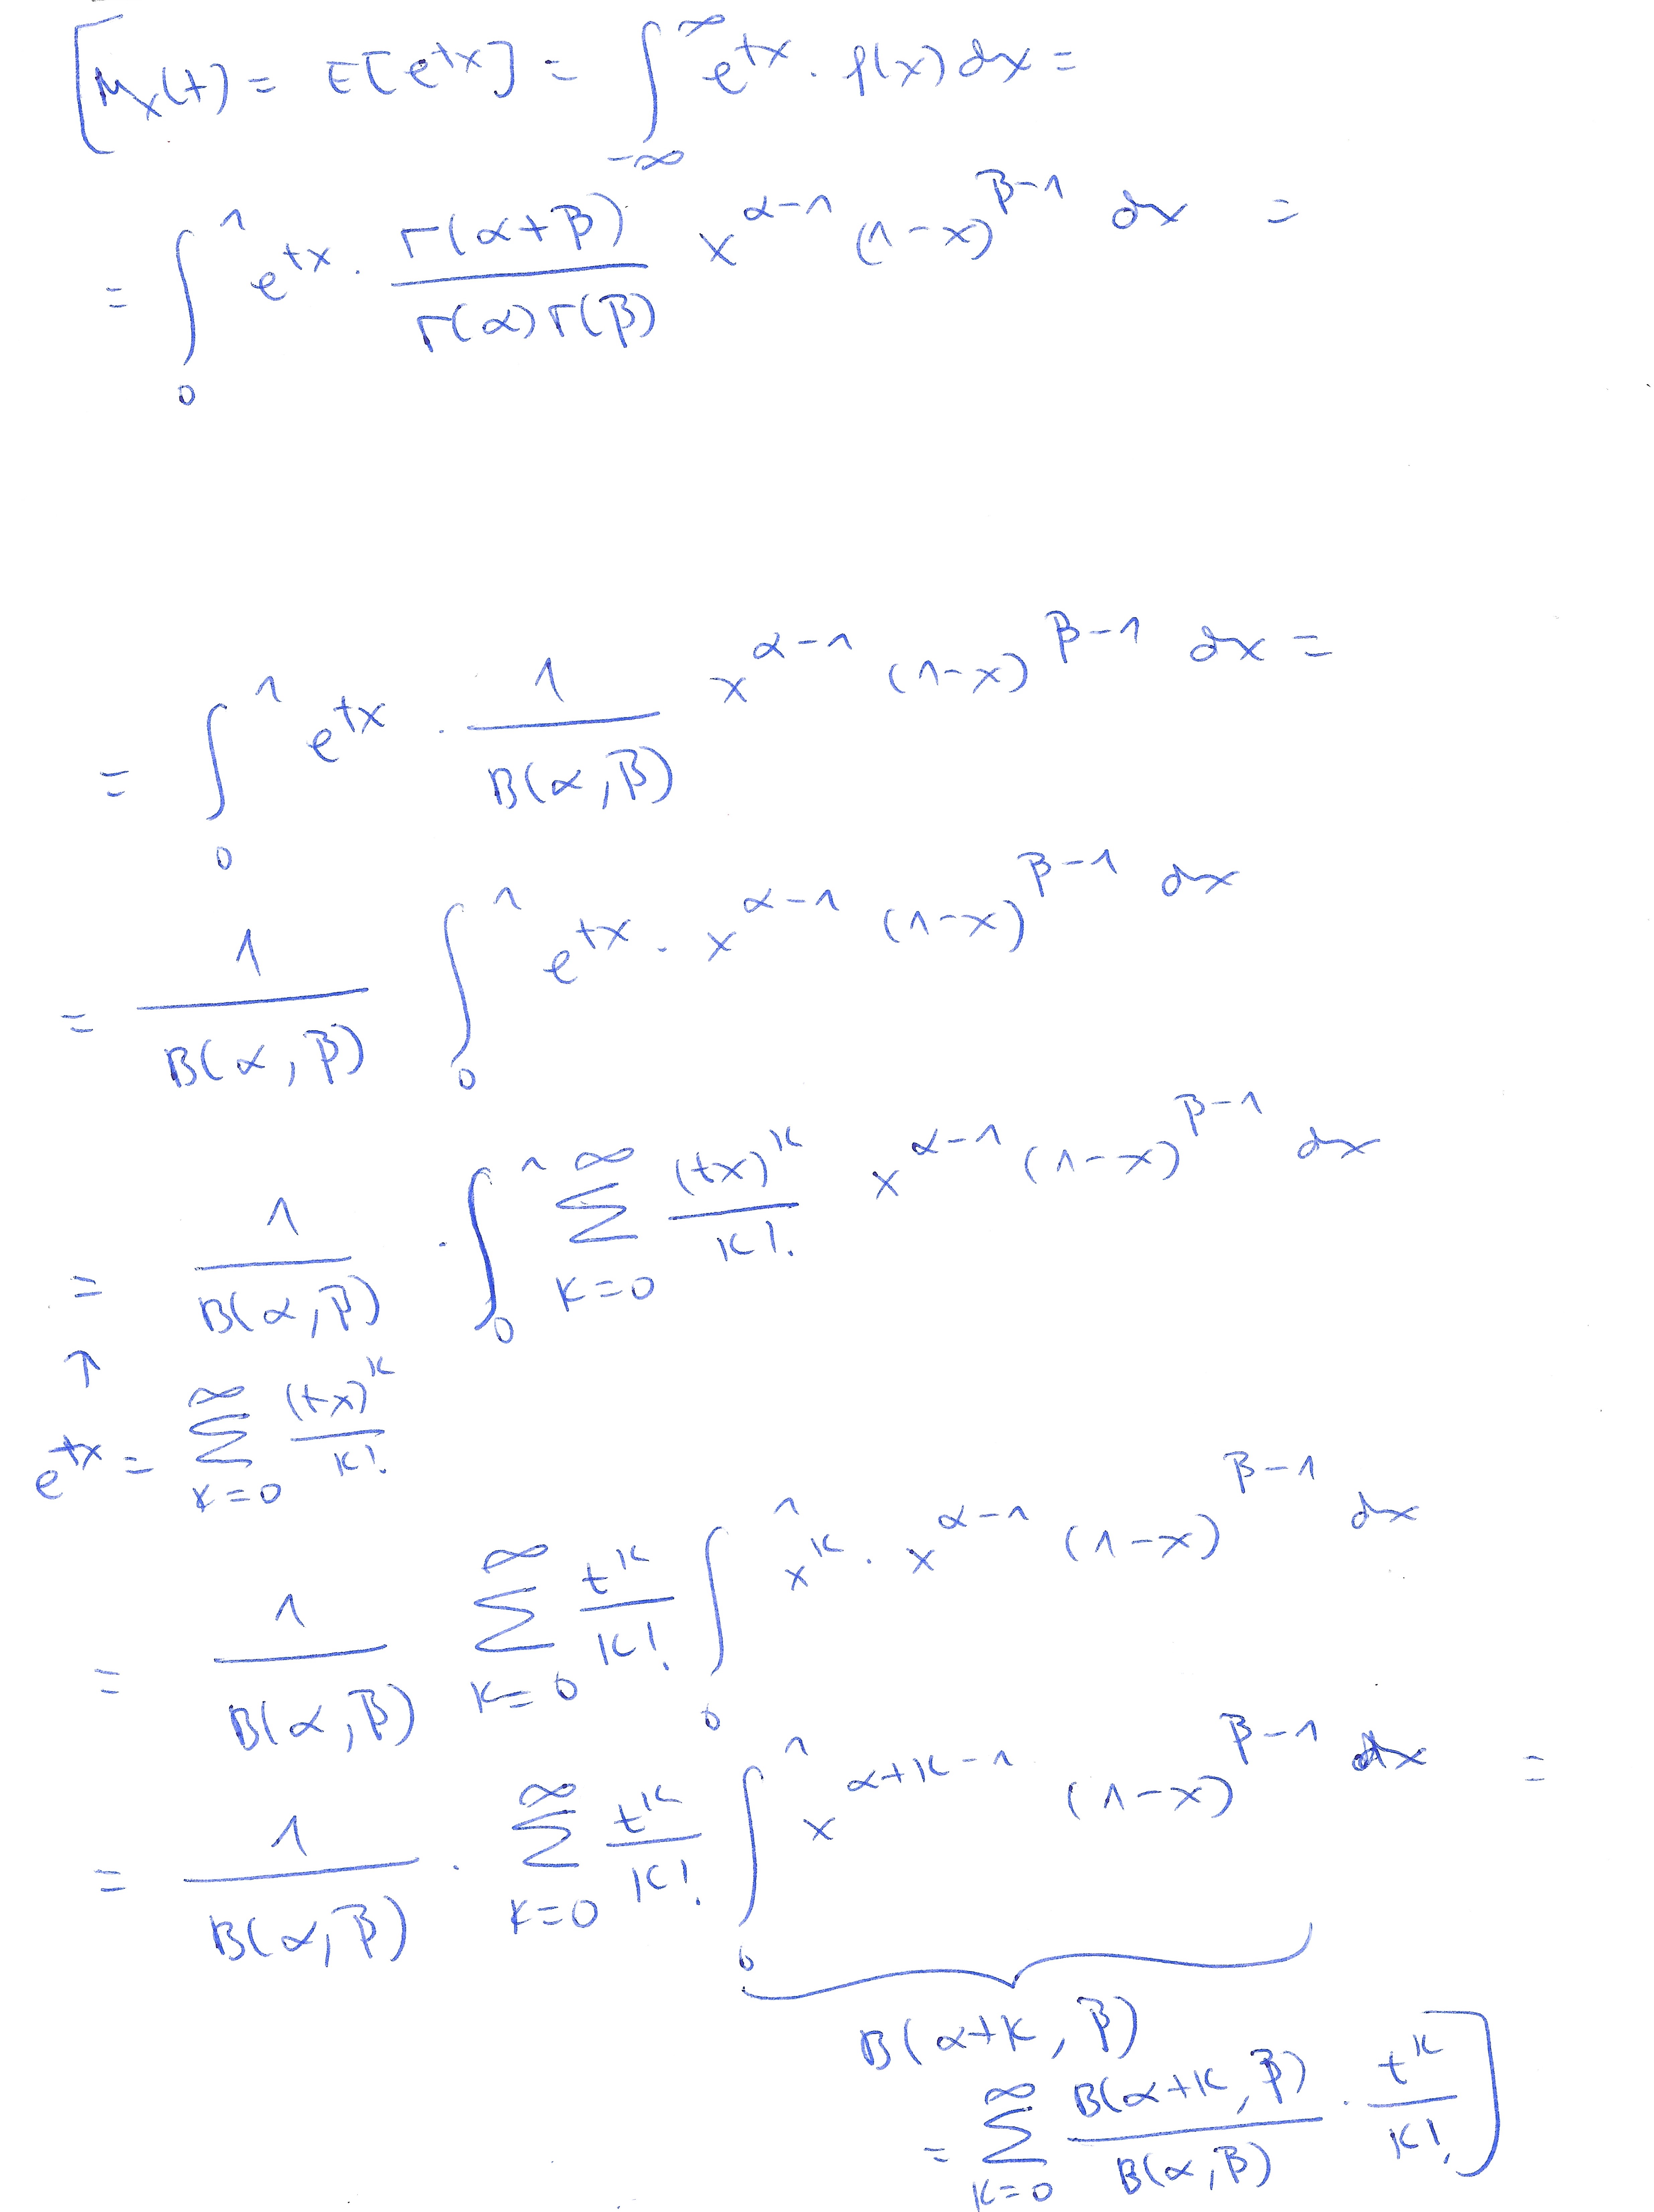 [M_X(t) = E[e^{tx}] = \int_{-\infty}^{\infty} e^{tx} \cdot f(x) dx =
= \int_0^1 e^{tx} \cdot \frac{Γ(α+β)}{Γ(α)Γ(β)} x^{α-1} (1-x)^{β-1} dx =
= \int_0^1 e^{tx} \cdot \frac{1}{B(α,β)} x^{α-1} (1-x)^{β-1} dx =
= \frac{1}{B(α,β)} \int_0^1 e^{tx} \cdot x^{α-1} (1-x)^{β-1} dx
= \frac{1}{B(α,β)} \cdot \int_0^1 \sum_{k=0}^{\infty} \frac{(tx)^k}{k!} x^{α-1} (1-x)^{β-1} dx
↑
e^{tx} = \sum_{k=0}^{\infty} \frac{(tx)^k}{k!}
= \frac{1}{B(α,β)} \sum_{k=0}^{\infty} \frac{t^k}{k!} \int_0^1 x^k \cdot x^{α-1} (1-x)^{β-1} dx
= \frac{1}{B(α,β)} \cdot \sum_{k=0}^{\infty} \frac{t^k}{k!} \int_0^1 x^{α+k-1} (1-x)^{β-1} dx =
B(α+k, β)
= \sum_{k=0}^{\infty} \frac{B(α+k, β)}{B(α,β)} \cdot \frac{t^k}{k!}]